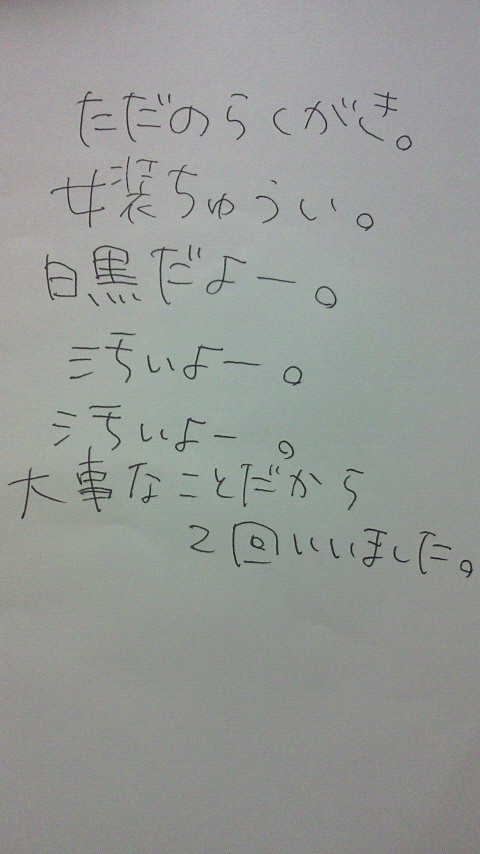 ただのらくがき。
女装ちゅうい。
白黒だよー。
汚いよー。
汚いよー。
大事なことだから
2回いいました。